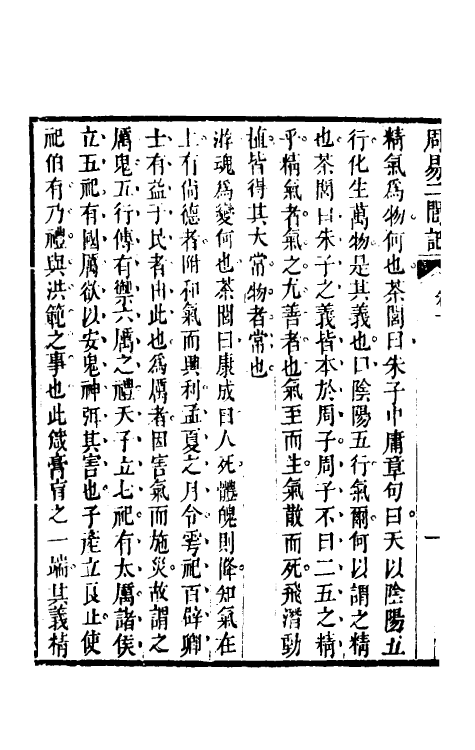 周易二閭記 卷一 一
精氣爲物何也茶閭曰朱子中庸章句曰天以陰陽五
行化生萬物是其義也曰陰陽五行氣爾何以謂之精
也茶閭曰朱子之義皆本於周子周子不曰二五之精
乎精氣者氣之尤善者也氣至而生氣散而死飛潛動
植皆得其大常物者常也
游魂爲變何也茶閭曰康成曰人死體魄則降知氣在
上有尙德者附和氣而興利孟夏之月令雩祀百辟卿
士有益于民者由此也爲厲者因害氣而施災故謂之
厲鬼五行傳有禦六厲之禮天子立七祀有太厲諸侯
立五祀有國厲欲以安鬼神弭其害也子產立良止使
祀伯有乃禮與洪範之事也此箴膏肓之一端其義精